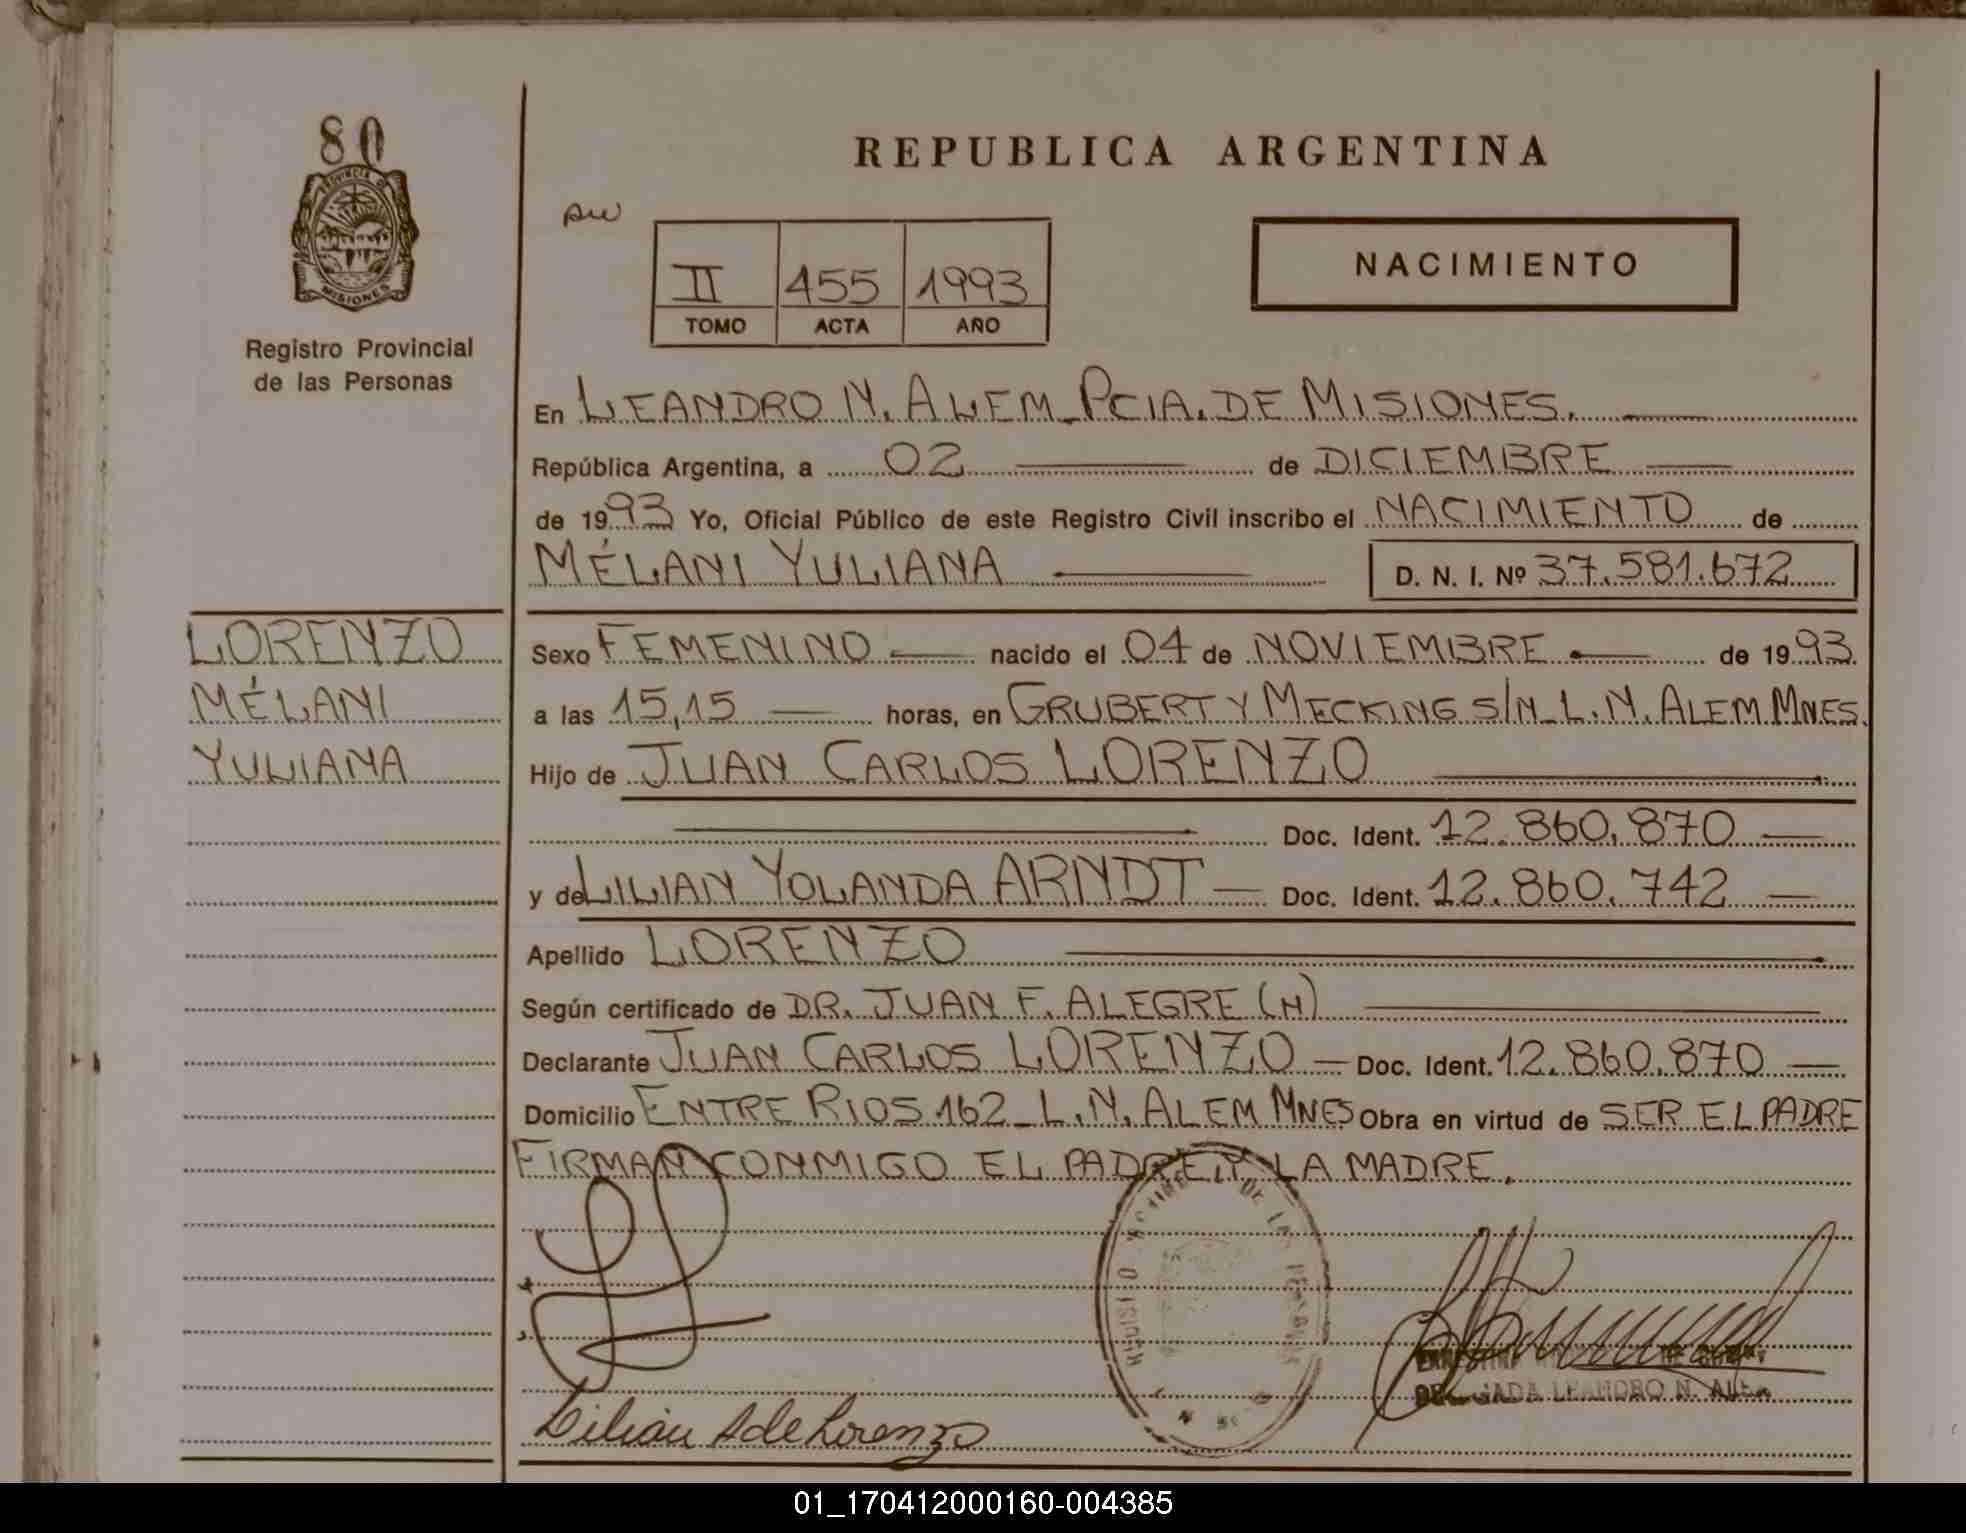 80
PROVINCIA DE
MISIONES
Registro Provincial
de las Personas
LORENZO
MÉLANI
YULIANA
REPUBLICA ARGENTINA
II 455 1993
TOMO ACTA AÑO
NACIMIENTO
En LEANDRO N. ALEM_PCIA. DE MISIONES.
República Argentina, a 02 de DICIEMBRE
de 1993 Yo, Oficial Público de este Registro Civil inscribo el NACIMIENTO de
MÉLANI YULIANA D. N. I. Nº 37.581.672
Sexo FEMENINO nacido el 04 de NOVIEMBRE de 1993
a las 15,15 horas, en GRUBERT Y MECKING S/N_L.N. ALEM MNES.
Hijo de JUAN CARLOS LORENZO
Doc. Ident. 12.860.870
y de LILIAN YOLANDA ARNDT Doc. Ident. 12.860.742
Apellido LORENZO
Según certificado de DR. JUAN F. ALEGRE (H)
Declarante JUAN CARLOS LORENZO Doc. Ident. 12.860.870
Domicilio ENTRE RIOS 162_L.N. ALEM MNES Obra en virtud de SER EL PADRE
FIRMAN CONMIGO EL PADRE Y LA MADRE.
DE LAS PERSONAS
DELEGADA LEANDRO N. ALEM
Lilian A de Lorenzo
01_170412000160-004385